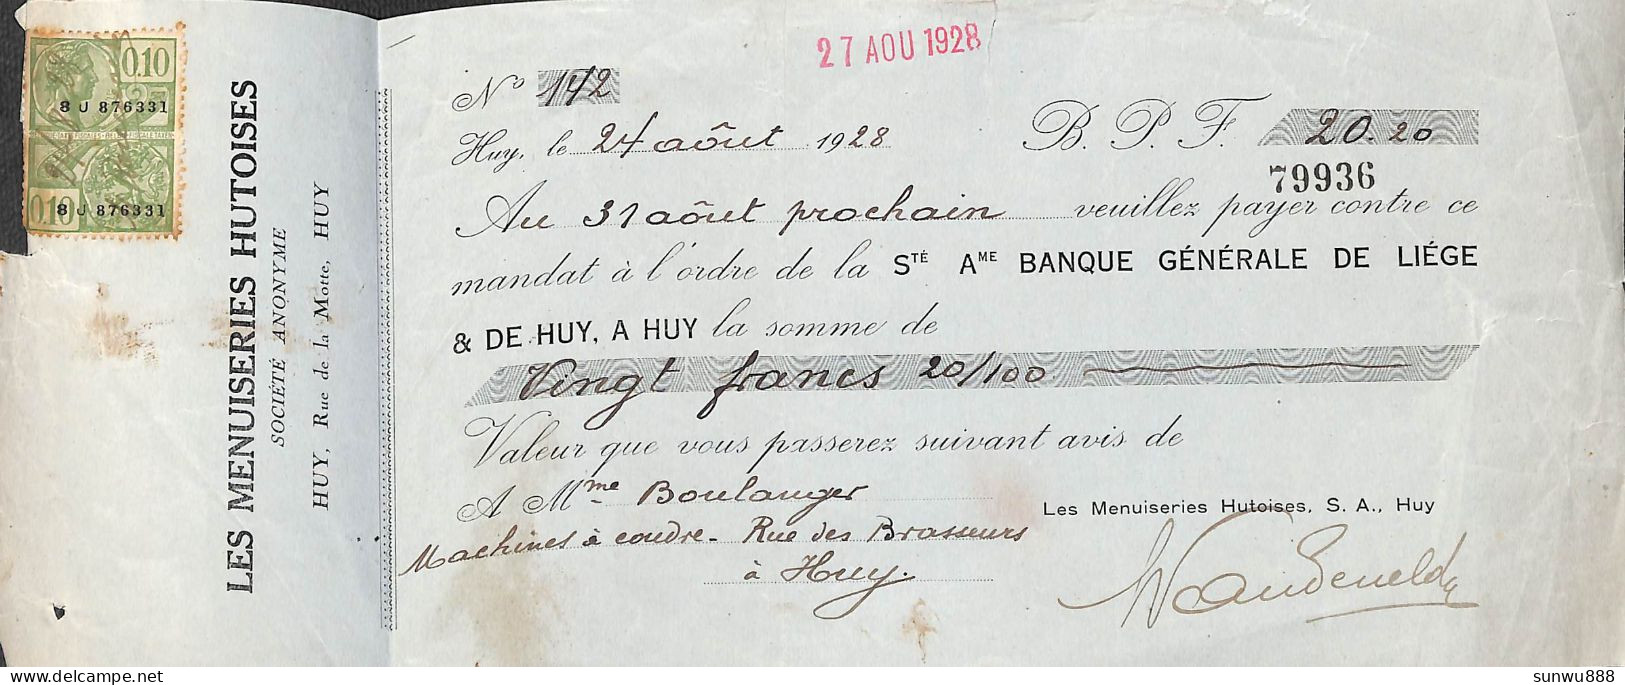 0.10
8 U 876331
0.10
8 U 876331
LES MENUISERIES HUTOISES
SOCIÉTÉ ANONYME
HUY, Rue de la Motte, HUY
27 AOU 1928
No 142
Huy, le 24 août 1928 B. P. F. 20.20
79936
Au 31 août prochain veuillez payer contre ce
mandat à l'ordre de la STÉ AME BANQUE GÉNÉRALE DE LIÉGE
& DE HUY, A HUY la somme de
Vingt francs 20/100
Valeur que vous passerez suivant avis de
A Mme Boulanger
Les Menuiseries Hutoises, S. A., Huy
Machines à coudre - Rue des Brasseurs
à Huy.
delcampe.net
sunwu888